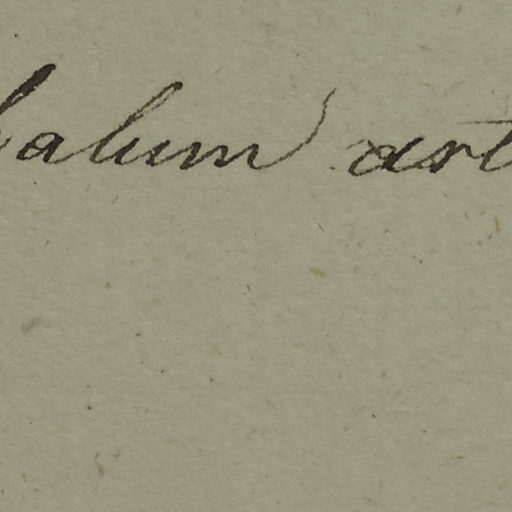 alum art